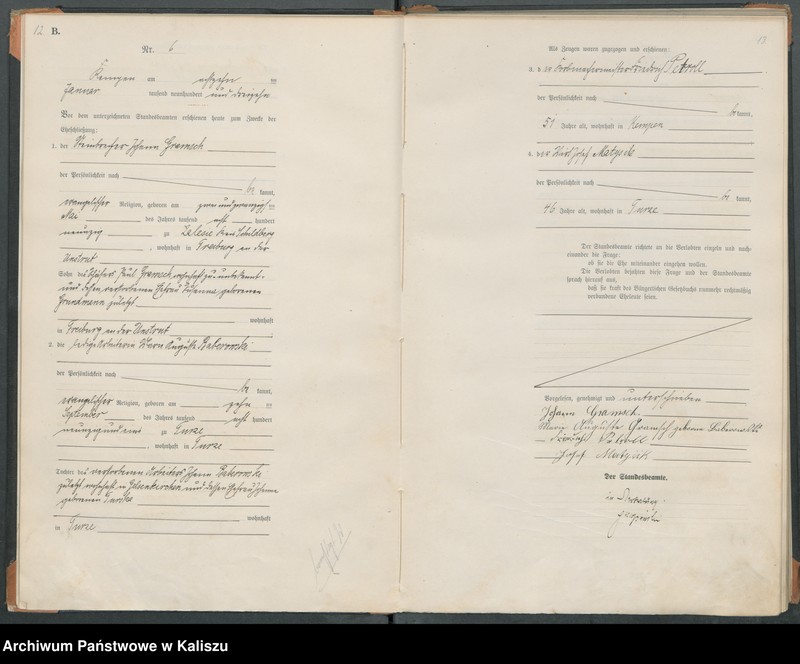 12
B.
Nr. 6
Kempen am achtzehn ten
Januar tausend neunhundert und dreizehn
Vor dem unterzeichneten Standesbeamten erschienen heute zum Zwecke der
Eheschließung:
1. der Steinbrecher Johann Gramsch
der Persönlichkeit nach
be kannt,
evangelischer Religion, geboren am zwei und zwanzigsten
Mai des Jahres tausend acht hundert
neunzig zu Zalesie Kreis Schildberg
, wohnhaft in Freiburg an der
Unstrut
Sohn des Paul Gramsch, wohnhaft zu unbekannt
und dessen verstorbenen Ehefrau Susanna geborenen
Grundmann zuletzt
wohnhaft
in Freiburg an der Unstrut
2. die ledige Arbeiterin Marie Auguste Baberowski
der Persönlichkeit nach
be kannt,
evangelischer Religion, geboren am zehn ten
September des Jahres tausend acht hundert
neunzig und eins zu Turze
, wohnhaft in Turze
Tochter des verstorbenen Arbeiters Johann Baberowski
zuletzt wohnhaft in Gelsenkirchen und dessen Ehefrau Johanna
geborenen
wohnhaft
in Turze
13
Als Zeugen waren zugezogen und erschienen:
3. der Korbmachermeister Friedrich Petroll
der Persönlichkeit nach
be kannt,
51 Jahre alt, wohnhaft in Kempen
4. der Wirt Josef Matysik
der Persönlichkeit nach
be kannt,
46 Jahre alt, wohnhaft in Turze
Der Standesbeamte richtete an die Verlobten einzeln und nach-
einander die Frage:
ob sie die Ehe miteinander eingehen wollen.
Die Verlobten bejahten diese Frage und der Standesbeamte
sprach hierauf aus,
daß sie kraft des Bürgerlichen Gesetzbuchs nunmehr rechtmäßig
verbundene Eheleute seien.
Vorgelesen, genehmigt und unterschrieben
Johann Gramsch.
Marie Auguste Gramsch geborene Baberowski
Friedrich Petroll
Josef Matysik
Der Standesbeamte.
In Vertretung.
Archiwum Państwowe w Kaliszu